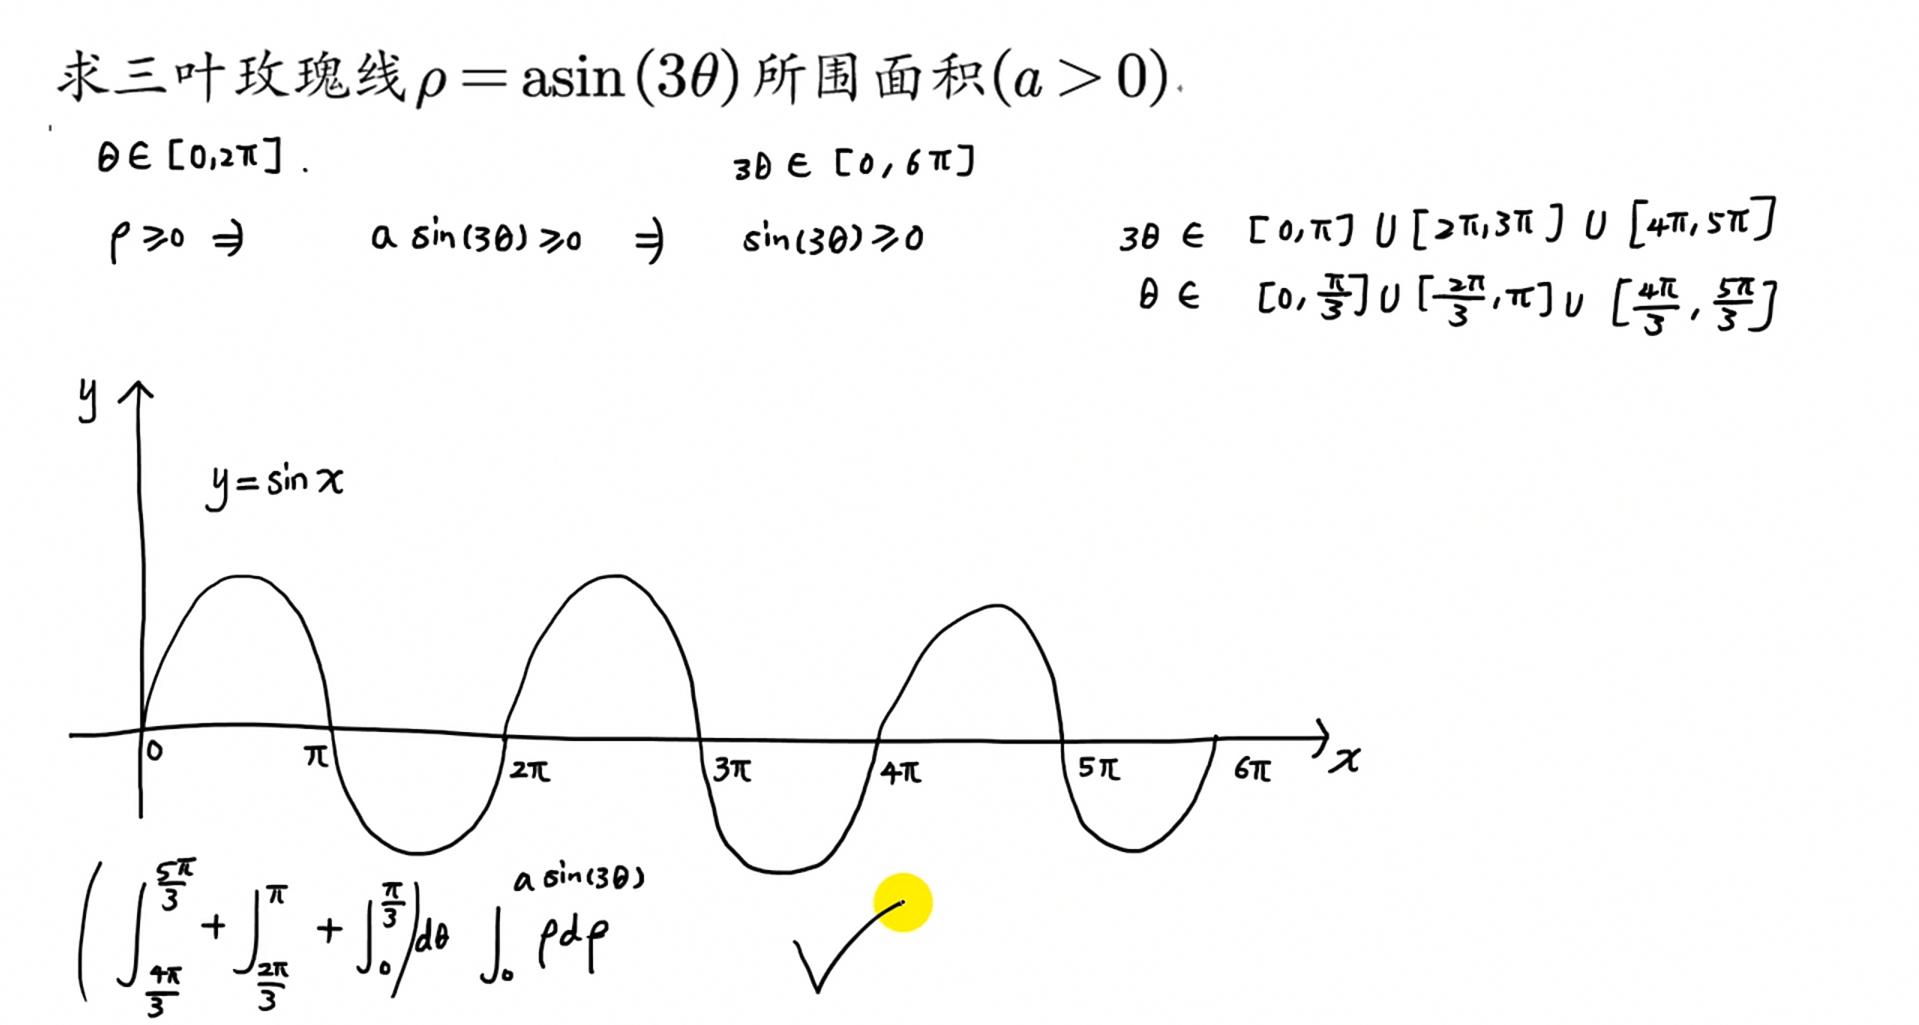 求三叶玫瑰线ρ=asin(3θ)所围面积(a>0).
θ∈[0,2π].
3θ∈[0,6π]
ρ≥0 ⇒ a sin(3θ)≥0 ⇒ sin(3θ)≥0
3θ∈ [0,π]∪[2π,3π]∪[4π,5π]
θ∈ [0,π/3]∪[2π/3,π]∪[4π/3,5π/3]
y
y=sin x
0 π 2π 3π 4π 5π 6π x
(∫_{4π/3}^{5π/3} + ∫_{2π/3}^{π} + ∫_{0}^{π/3})dθ ∫_{0}^{a sin(3θ)} ρdρ